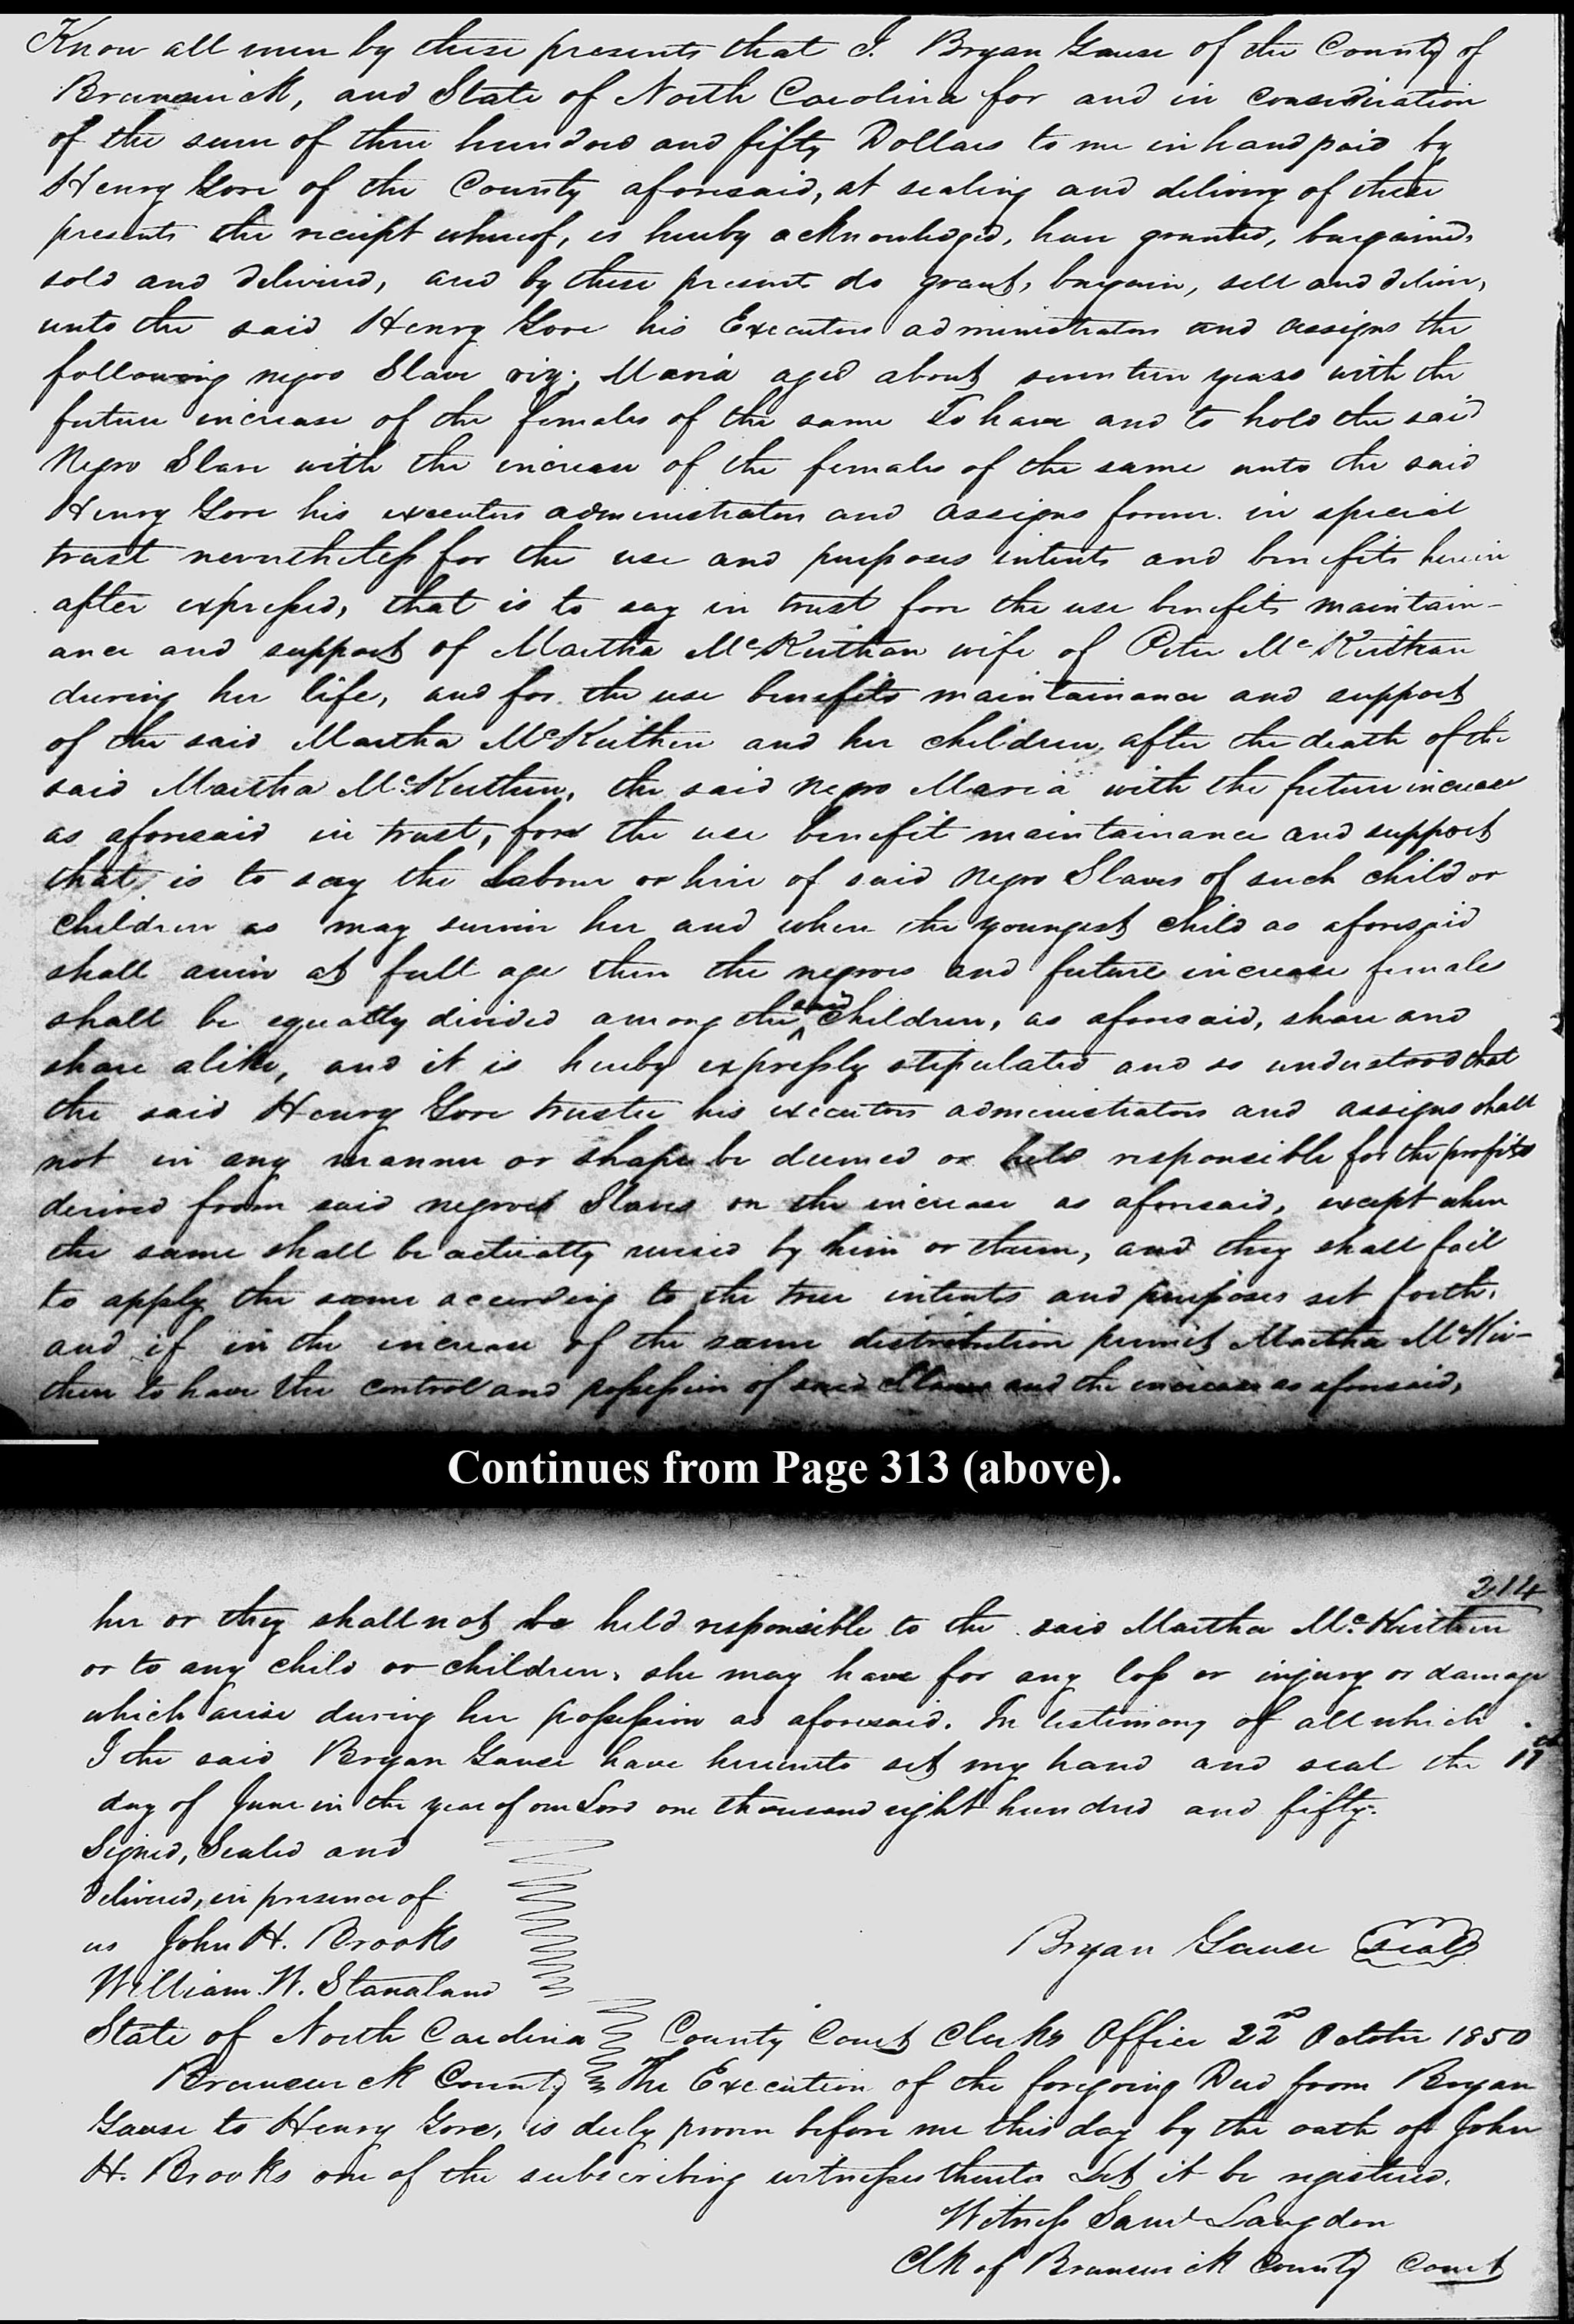 Know all men by these presents that I. Bryan Gause of the County of
Brunswick, and State of North Carolina for and in consideration
of the sum of three hundred and fifty Dollars to me in hand paid by
Henry Gore of the County aforesaid, at sealing and delivery of these
presents the receipt whereof, is hereby acknowledged, have granted, bargained,
sold and delivered, and by these presents do grant, bargain, sell and deliver,
unto the said Henry Gore his Executors administrators and assigns the
following negro Slave viz; Maria aged about seventeen years with the
future increase of the females of the same To have and to hold the said
Negro Slave with the increase of the females of the same unto the said
Henry Gore his executors administrators and assigns forever. in special
trust nevertheless for the use and purposes intents and benefits herein
after expressed, that is to say in trust for the use benefits maintain-
ance and support of Martha McKeithan wife of Peter McKeithan
during her life, and for the use benefits maintainance and support
of the said Martha McKeithen and her children, after the death of the
said Martha McKeithen, the said negro Maria with the future increase
as aforesaid in trust, for the use benefit maintainance and support
that, is to say the labour or hire of said Negro Slaves of such child or
children as may survive her and when the youngest child as aforesaid
shall arrive at full age then the negroes and future increase females
shall be equally divided among the said children, as aforesaid, share and
share alike, and it is hereby expressly stipulated and so understood that
the said Henry Gore trustee his executors administrators and assigns shall
not in any manner or shape be deemed or held responsible for the profits
derived from said negroes Slaves or the increase as aforesaid, except when
the same shall be actually received by him or them, and they shall fail
to apply the same according to the true intents and purposes set forth.
and if in the increase of the same distribution permit Martha McKei-
then to have the control and possession of said Slaves and the increase as aforesaid,
Continues from Page 313 (above).
314
her or they shall not be held responsible to the said Martha McKeithen
or to any child or children, she may have for any loss or injury or damage
which arise during her possession as aforesaid. In testimony of all which
I the said Bryan Gause have hereunto set my hand and seal the 17th
day of June in the year of our Lord one thousand eight hundred and fifty.
Signed, Sealed and
delivered, in presence of
us John H. Brooks
Bryan Gause seal
William W. Stanaland
State of North Carolina County Court Clerks Office 22nd October 1850
Brunswick County The Execution of the foregoing Deed from Bryan
Gause to Henry Gore, is duly proven before me this day by the oath of John
H. Brooks one of the subscribing witnesses thereto Let it be registered.
Witness Saml Langdon
Clk of Brunswick County Court